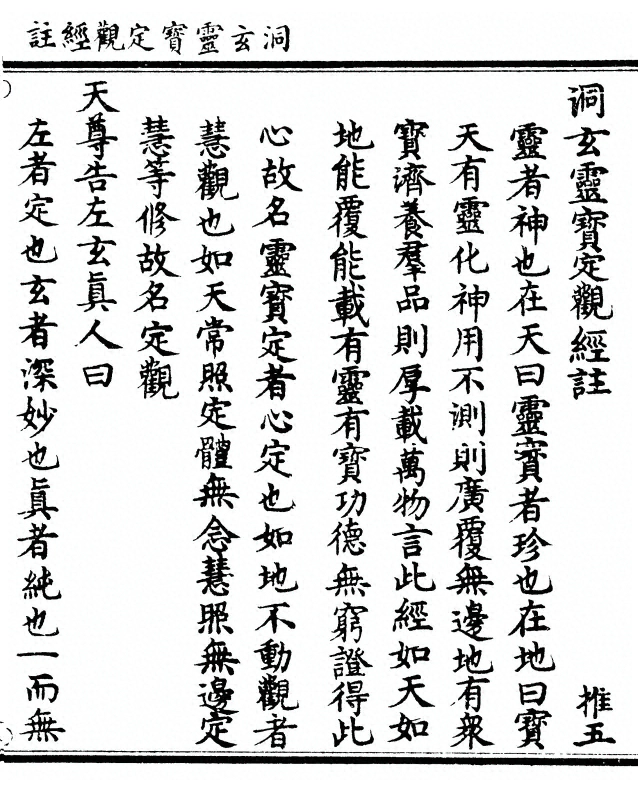 洞玄靈寶定觀經註
洞玄靈寶定觀經註 推五
靈者神也在天曰靈寳者珍也在地曰寶
天有靈化神用不測則廣覆無邊地有衆
寶濟養羣品則厚載萬物言此經如天如
地能覆能載有靈有寶功德無窮證得此
心故名靈寶定者心定也如地不動觀者
慧觀也如天常照定體無念慧照無邊定
慧等修故名定觀
天尊告左玄真人曰
左者定也玄者深妙也真者純也一而無